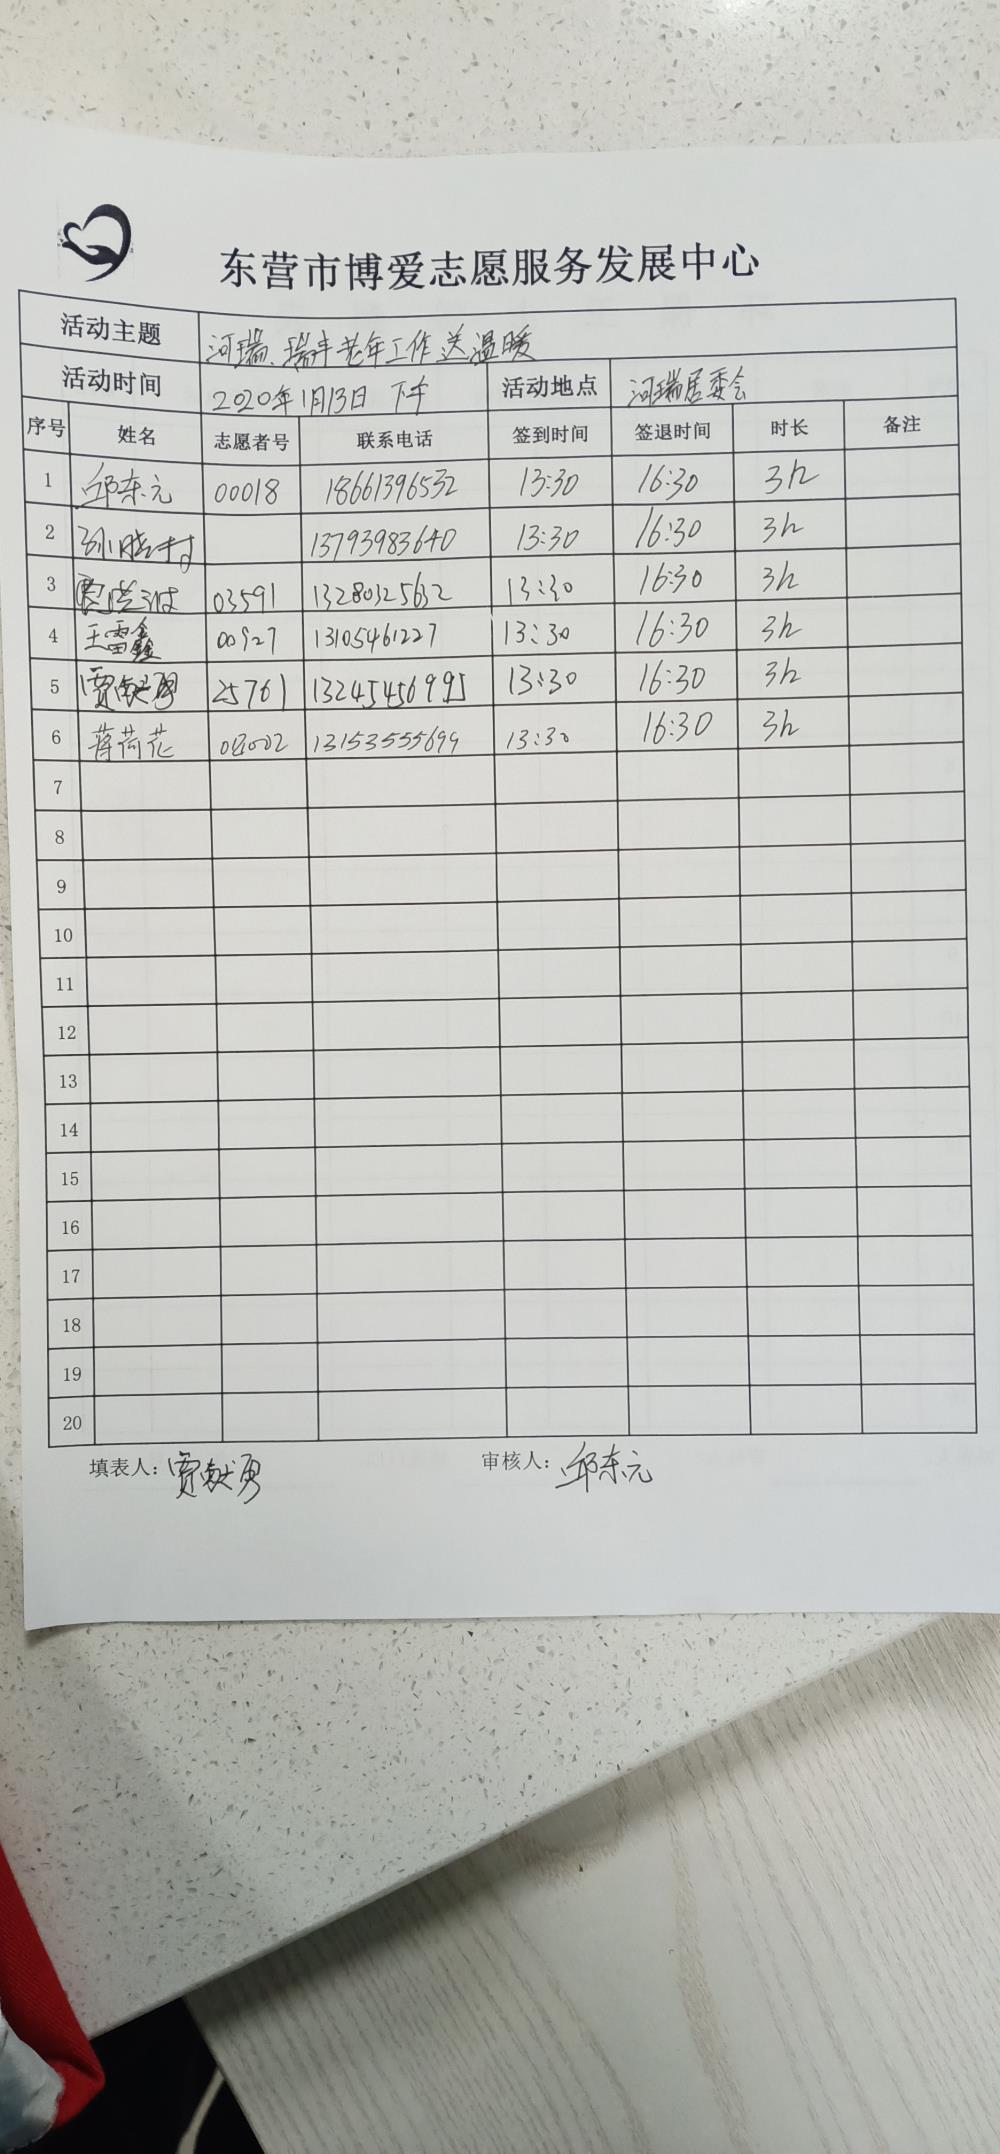 东营市博爱志愿服务发展中心
活动主题 河瑞、瑞丰老年工作送温暖
活动时间 2020年1月13日 下午 活动地点 河瑞居委会
序号 姓名 志愿者号 联系电话 签到时间 签退时间 时长 备注
1 邱东元 00018 18661396532 13:30 16:30 3h
2 13793983640 13:30 16:30 3h
3 03591 13280325632 13:30 16:30 3h
4 王雷鑫 00927 13105461227 13:30 16:30 3h
5 贾献勇 25761 13245456995 13:30 16:30 3h
6 蒋荷花 13153555699 13:30 16:30 3h
7
8
9
10
11
12
13
14
15
16
17
18
19
20
填表人：贾献勇 审核人：邱东元